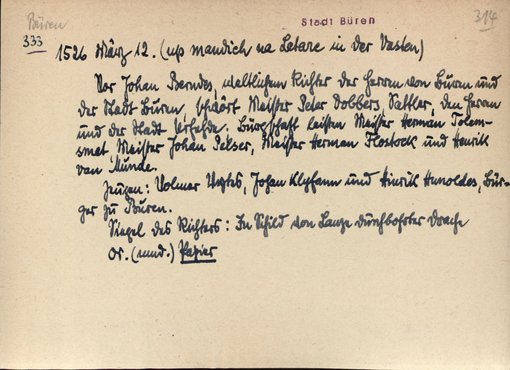 Büren
Stadt Büren
314
333
1526 März 12. (up mandich na Letare in der Vasten)
Vor Johan Berndes, weltlichem Richter der Herren von Büren und
der Stadt Büren, schwört Meister Peter Dobbers Sattler, den Herren
und der Stadt Urfehde. Bürgschaft leisten Meister Herman Tolem-
smet, Meister Johan Pelser, Meister Herman Flostock und Henrik
van Münde.
Zeugen: Volmar Johan Klyfann und Hinrik Hunoldes, Bür-
ger zu Büren.
Siegel des Richters: Im Schild von Lanze durchbohrter Drache
Or. (mnd.) Papier